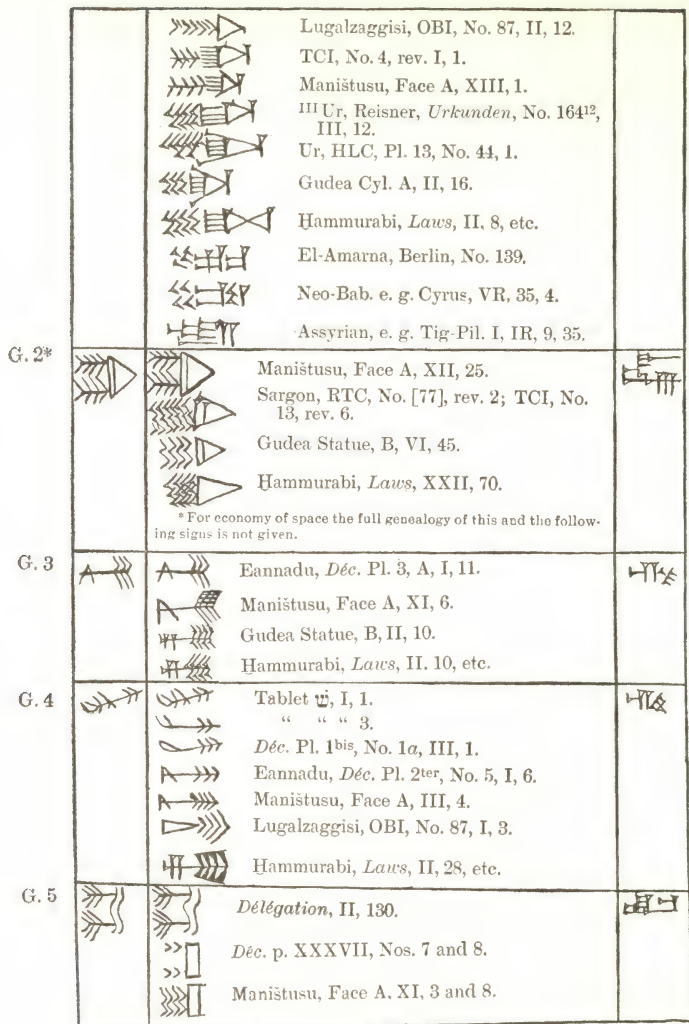 Lugalzaggisi, OBI, No. 87, II, 12.
TCI, No. 4, rev. I, 1.
Maništusu, Face A, XIII, 1.
III Ur, Reisner, Urkunden, No. 164¹²,
III, 12.
Ur, HLC, Pl. 13, No. 44, 1.
Gudea Cyl. A, II, 16.
Ḫammurabi, Laws, II, 8, etc.
El-Amarna, Berlin, No. 139.
Neo-Bab. e. g. Cyrus, VR, 35, 4.
Assyrian, e. g. Tig-Pil. I, IR, 9, 35.
G. 2*
Maništusu, Face A, XII, 25.
Sargon, RTC, No. [77], rev. 2; TCI, No.
13, rev. 6.
Gudea Statue, B, VI, 45.
Ḫammurabi, Laws, XXII, 70.
* For economy of space the full genealogy of this and the follow-
ing signs is not given.
G. 3
Eannadu, Déc. Pl. 3, A, I, 11.
Maništusu, Face A, XI, 6.
Gudea Statue, B, II, 10.
Ḫammurabi, Laws, II. 10, etc.
G. 4
Tablet שׁ, I, 1.
“ “ “ 3.
Déc. Pl. 1bis, No. 1a, III, 1.
Eannadu, Déc. Pl. 2ter, No. 5, I, 6.
Maništusu, Face A, III, 4.
Lugalzaggisi, OBI, No. 87, I, 3.
Ḫammurabi, Laws, II, 28, etc.
G. 5
Délégation, II, 130.
Déc. p. XXXVII, Nos. 7 and 8.
Maništusu, Face A, XI, 3 and 8.